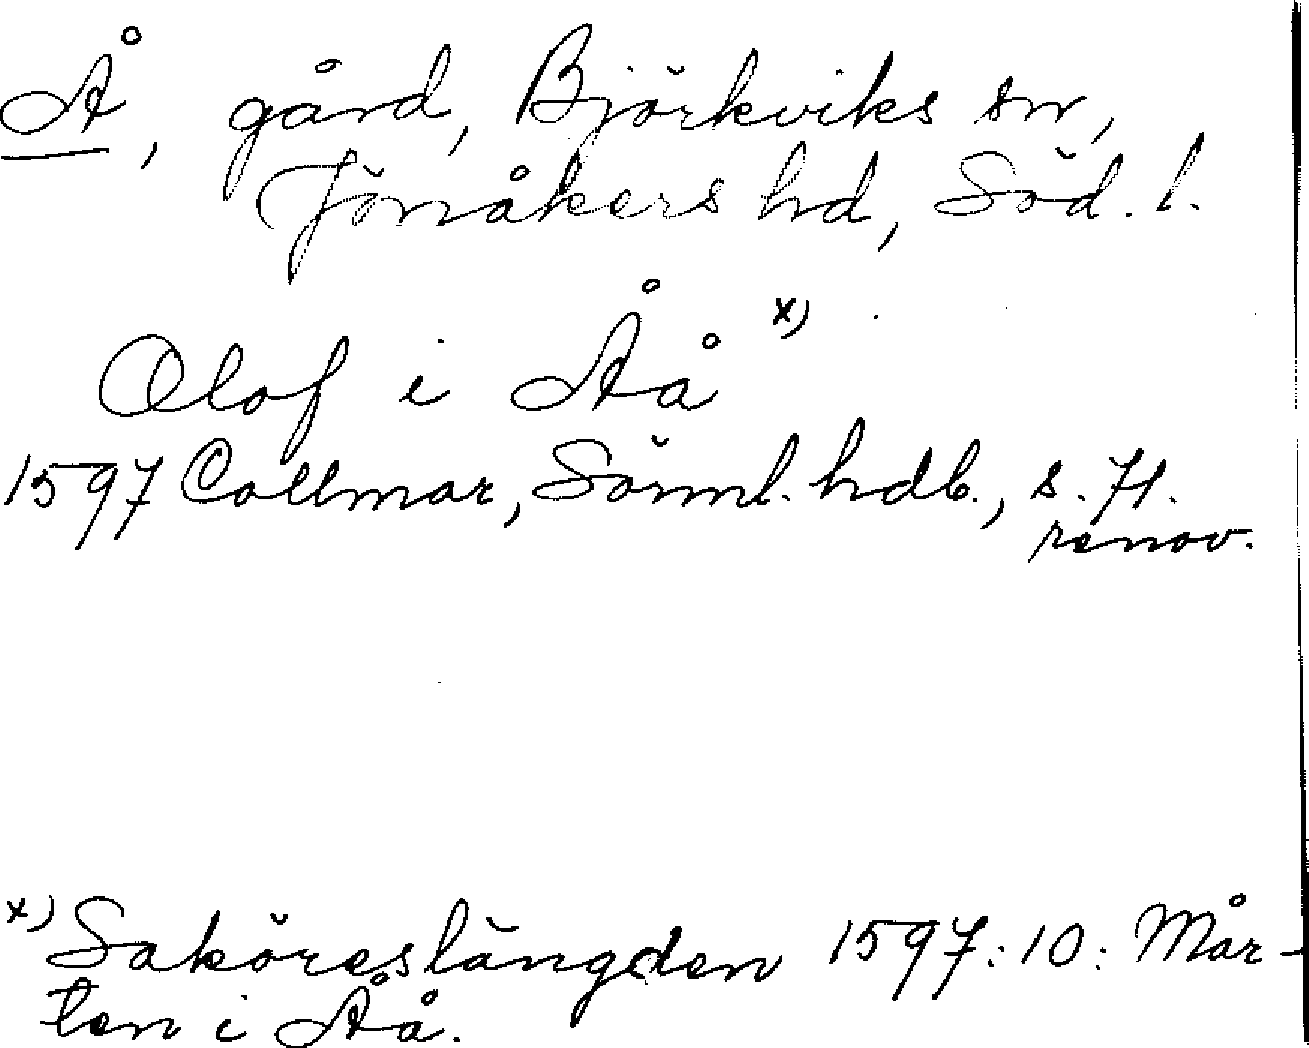 Å, gård, Björkviks sn,
Jönåkers hd, Söd. l.
Olof i Åå x)
1597 Collmar, Sörml. hdb., s. 71.
renov.
x) Saköreslängden 1597: 10: Mår-
ten i Åå.